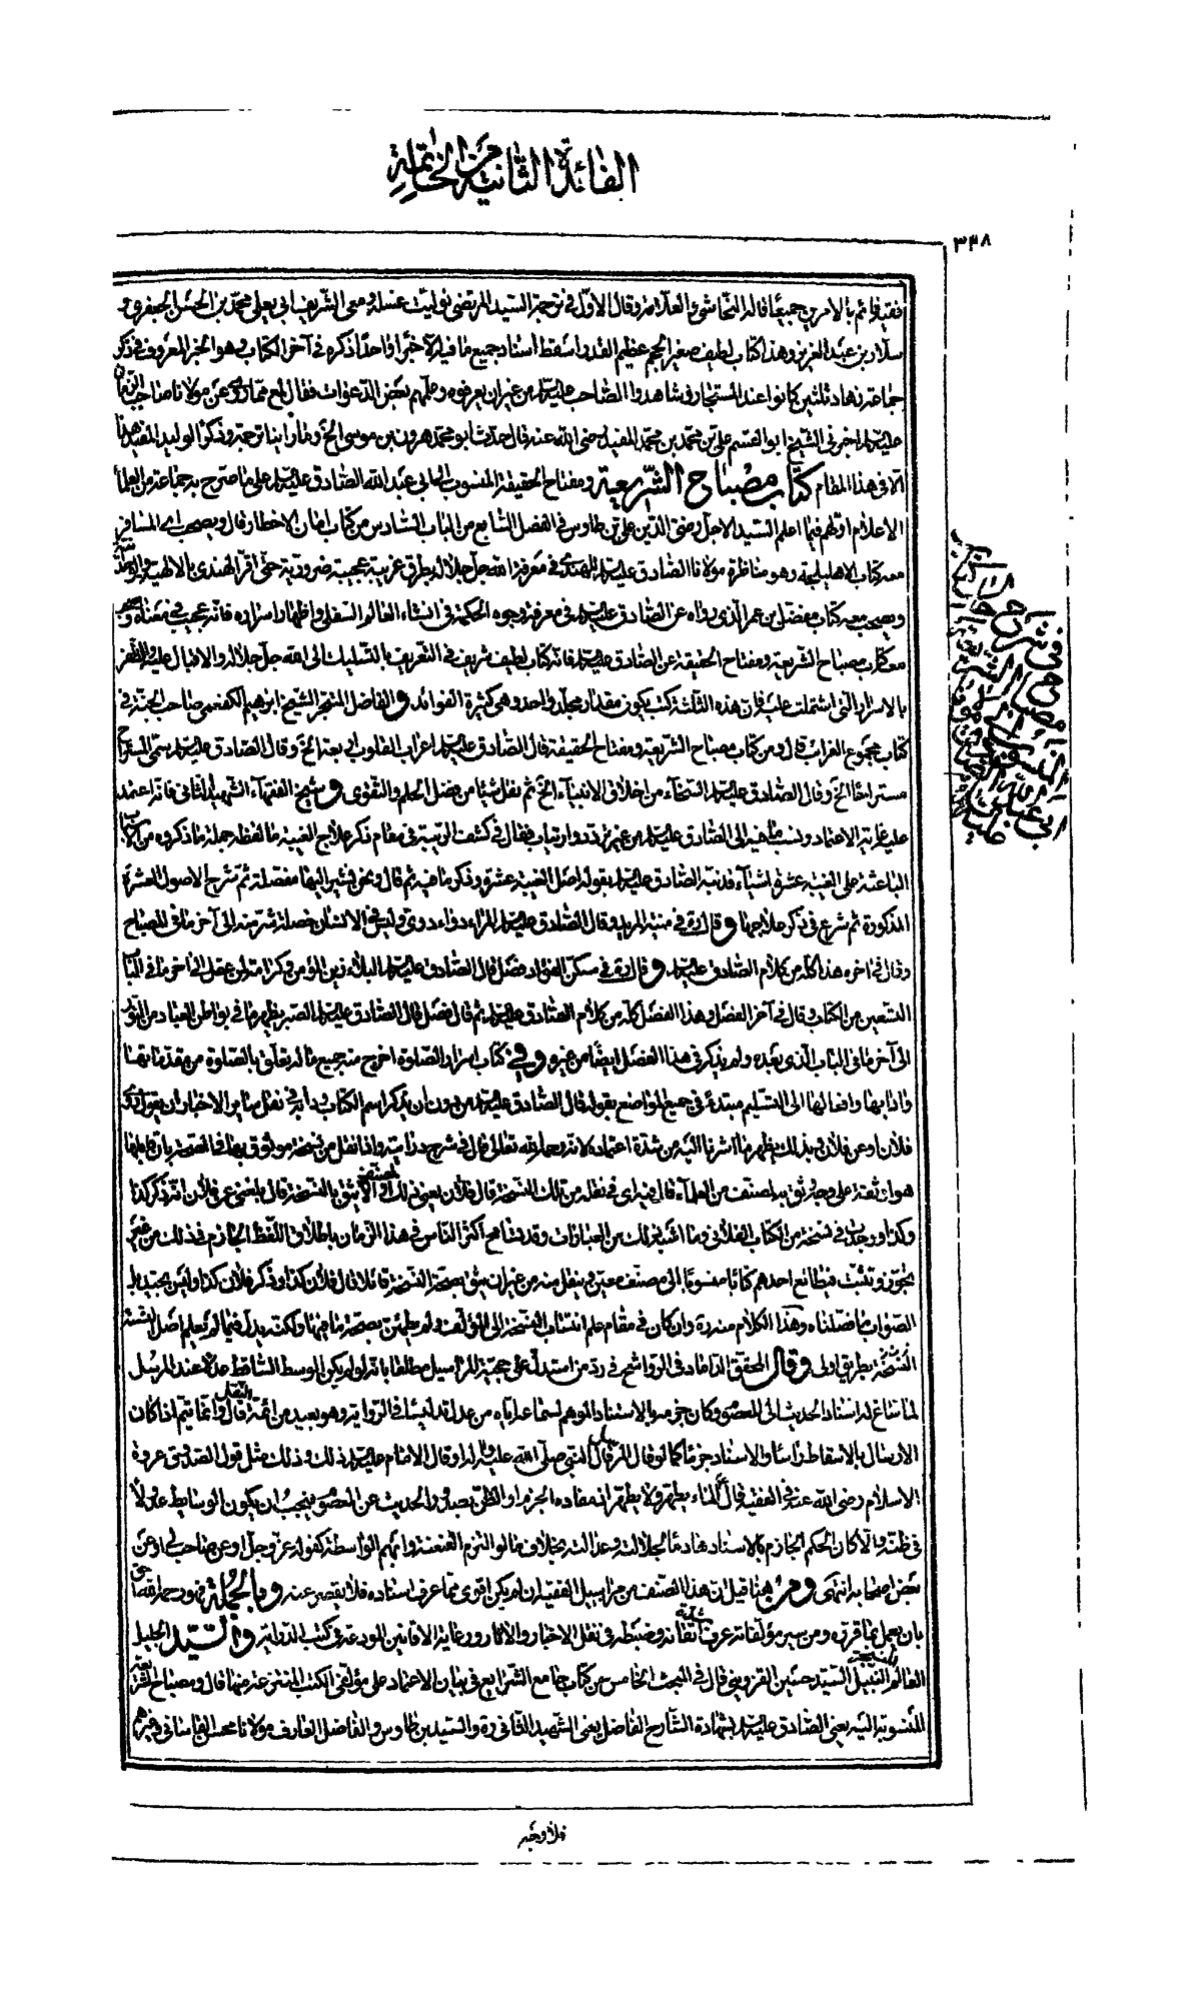 الفائدة الثانية من الخاتمة
٣٢٨
فقيه قائم بالامرين جميعا قاله النجاشي والعلامة وقال الاول في ترجمة السيد المرتضى توليت غسله ومعي الشريف ابي يعلى محمد بن الحسن الجعفري و
سلار بن عبد العزيز وهذا كتاب لطيف صغير الحجم عظيم القدر واسقط اسناد جميع ما فيه الا خبرا واحدا ذكره في آخر الكتاب وهو الخبر المعروف في ذكر
جماعة زهاد ثلثين كانوا عند المستجار وشاهدوا الصاحب عليه السلام من غير ان يعرفوه وعلمهم بعض الدعوات فقال مما روي عن مولانا صاحب الزمان
عليه السلام اخبرني الشيخ ابو القسم علي بن محمد بن محمد المفيد رضي الله عنه قال حدث ابو محمد هرون بن موسى الخ وما راينا ترجمة وذكرا لوليد المفيد هذا
الا في هذا المقام كتاب مصباح الشريعة ومفتاح الحقيقة المنسوب الى ابي عبد الله الصادق عليه السلام على ما صرح به جماعة من العلماء
الاعلام اولهم فيما اعلم السيد الاجل رضي الدين علي بن طاوس في الفصل السابع من الباب السادس من كتاب امان الاخطار قال ويصحب المسافر
معه كتاب الاهليلجة وهو مناظرة مولانا الصادق عليه السلام الهندي في معرفة الله جل جلاله بطرق غريبة عجيبة ضرورية حتى اقر الهندي بالالهية والوحدانية
ويصحب معه كتاب مفضل بن عمر الذي رواه عن الصادق عليه السلام في معرفة وجوه الحكمة في انشاء العالم السفلي واظهار اسراره فانه عجيب في معناه ويصحب
معه كتاب مصباح الشريعة ومفتاح الحقيقة عن الصادق عليه السلام فانه كتاب لطيف شريف في التعريف بالتسليك الى الله جل جلاله والاقبال عليه والظفر
بالاسرار التي اشتملت عليه فان هذه الثلثة كتب يكون مقدار مجلد واحد وهي كثيرة الفوائد والفاضل المتبحر الشيخ ابرهيم الكفعمي صاحب الجنة في
كتاب مجموع الغرائب قال ومن كتاب مصباح الشريعة ومفتاح الحقيقة قال الصادق عليه السلام اعراب القلوب اربعة الخ وقال الصادق عليه السلام سمي المستراح
مستراحا الخ وقال الصادق عليه السلام السخاء من اخلاق الانبياء الخ ثم نقل شيئا من فضل الحلم والتقوى وشيخ الفقهاء الشهيد الثاني فانه اعتمد
عليه غاية الاعتماد ونسب ما فيه الى الصادق عليه السلام من غير تردد وارتياب فقال في كشف الريبة في مقام ذكر علاج الغيبة ما لفظه جملة ما ذكروه من الاسباب
الباعثة على الغيبة عشرة اشياء قد نبه الصادق عليه السلام بقوله اصل الغيبة عشرة وذكر ما فيه ثم قال ونحن نشير اليها مفصلة ثم شرح الاصول العشرة
المذكورة ثم شرع في ذكر علاجها وقال ره في منية المريد وقال الصادق عليه السلام المراء داء دوي وليس في الانسان خصلة شر منه الى آخر ما في المصباح
وقال في آخره هذا كله من كلام الصادق عليه السلام وقال ره في مسكن الفؤاد فصل قال الصادق عليه السلام البلاء زين المؤمن وكرامة لمن عقل الى آخر ما في الباب
التسعين من الكتاب وقال في آخر الفصل وهذا الفصل كله من كلام الصادق عليه السلام ثم قال فصل قال الصادق عليه السلام الصبر يظهر ما في بواطن العباد من النور
الى آخر ما في الباب الذي بعده ولم يذكر في هذا الفصل ايضا من غيره وفي كتاب اسرار الصلوة اخرج منه جميع ما له تعلق بالصلوة من مقدماتها
وادابها وافعالها الى التسليم مبتدءا في جميع المواضع بقوله قال الصادق عليه السلام من دون ان يذكر اسم الكتاب ودابه في نقل ساير الاخبار ان يقول ذكر
فلان او عن فلان وبذلك يظهر ما اشرنا اليه من شدة اعتماده لانه رحمه الله تعالى قال في شرح درايته واذا نقل من نسخة موثوق بها في الصحة بان قابلها
هو او ثقة على وجه يثق به لمصنف من العلماء قال فيه اي في نقله من تلك النسخة قال فلان يعني ذلك المصنف والا يثق بالنسخة قال بلغني عن فلان انه ذكر كذا
وكذا او وجدت في نسخة من الكتاب الفلاني وما اشبه ذلك من العبارات وقد تسامح اكثر الناس في هذا الزمان باطلاق اللفظ الجازم في ذلك من غير
تحرز وتثبت فيطالع احدهم كتابا منسوبا الى مصنف معين وينقل منه من غير ان يثق بصحة النسخة قائلا قال فلان كذا وذكر فلان كذا وليس بجيد بل
الصواب ما فصلناه وهذا الكلام منه ره وان كان في مقام علم انتساب النسخة الى المؤلف ولم يطمئن بصحة ما فيها ولكنه يدل فيما لم يعلم اصل النسبة
النسخة بطريق اولى وقال المحقق الداماد في الرواشح في رد من استدل على حجية المراسيل مطلقا بانه لو لم يكن الوسط الساقط عدلا عند المرسل
لما ساغ له اسناد الحديث الى المعصوم وكان جزمه بالاسناد الموهم لسماعه اياه من عدل تدليسا في الرواية وهو بعيد من ائمة النقل قال وانما يتم اذا كان
الارسال بالاسقاط راسا والاسناد جزما كما لو قال المرسل قال النبي صلى الله عليه واله او قال الامام عليه السلام ذلك وذلك مثل قول الصدوق عروة
الاسلام رضي الله عنه في الفقيه قال الماء يطهر ولا يطهر اذ مفاده الجزم او الظن بصدور الحديث عن المعصوم فيجب ان يكون الوسايط عدولا
في ظنه والا كان الحكم الجازم بالاسناد هادما لجلالته وعدالته بخلاف ما لو التزم العنعنة وابهم الواسطة كقوله عن رجل او عن صاحب لي او عن
بعض اصحابه انتهى ومن هنا قيل ان هذا الصنف من مراسيل الفقيه ان لم يكن اقوى مما عرف اسناده فلا يقصر عنه وبالجملة فهو رحمه الله احق
بان يعمل بما قرره ومن سبر مؤلفاته عرف شدة اتقانه وضبطه في نقل الاخبار والاثار ورعاية الافانين المودعة في كتب الدراية والسيد الجليل
العالم المتبحر النبيل السيد حسين القزويني قال في المبحث الخامس من كتاب جامع الشرايع في بيان الاعتماد على مؤلفي الكتب المنتزعة منها قال ومصباح الشريعة
المنسوبة اليه يعني الصادق عليه السلام بشهادة الشارح الفاضل يعني الشهيد الثاني ره والسيد بن طاوس والفاضل العارف مولانا محسن القاساني وغيرهم
فلا وجه